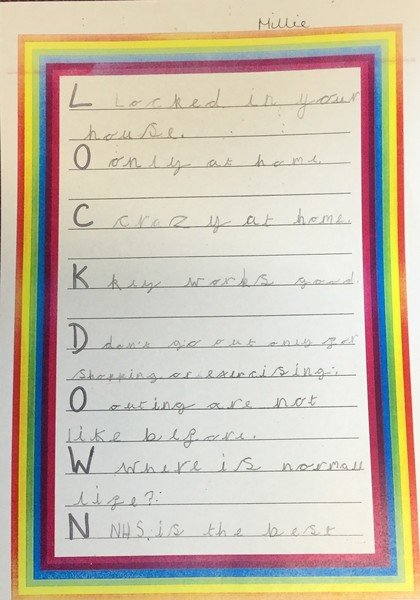 Millie
L Locked in your
house.
O only at home.
C crazy at home.
K key works good.
D don't go out only for
shopping or exercising.
O outing are not
like before.
W where is normall
life?
N NHS is the best